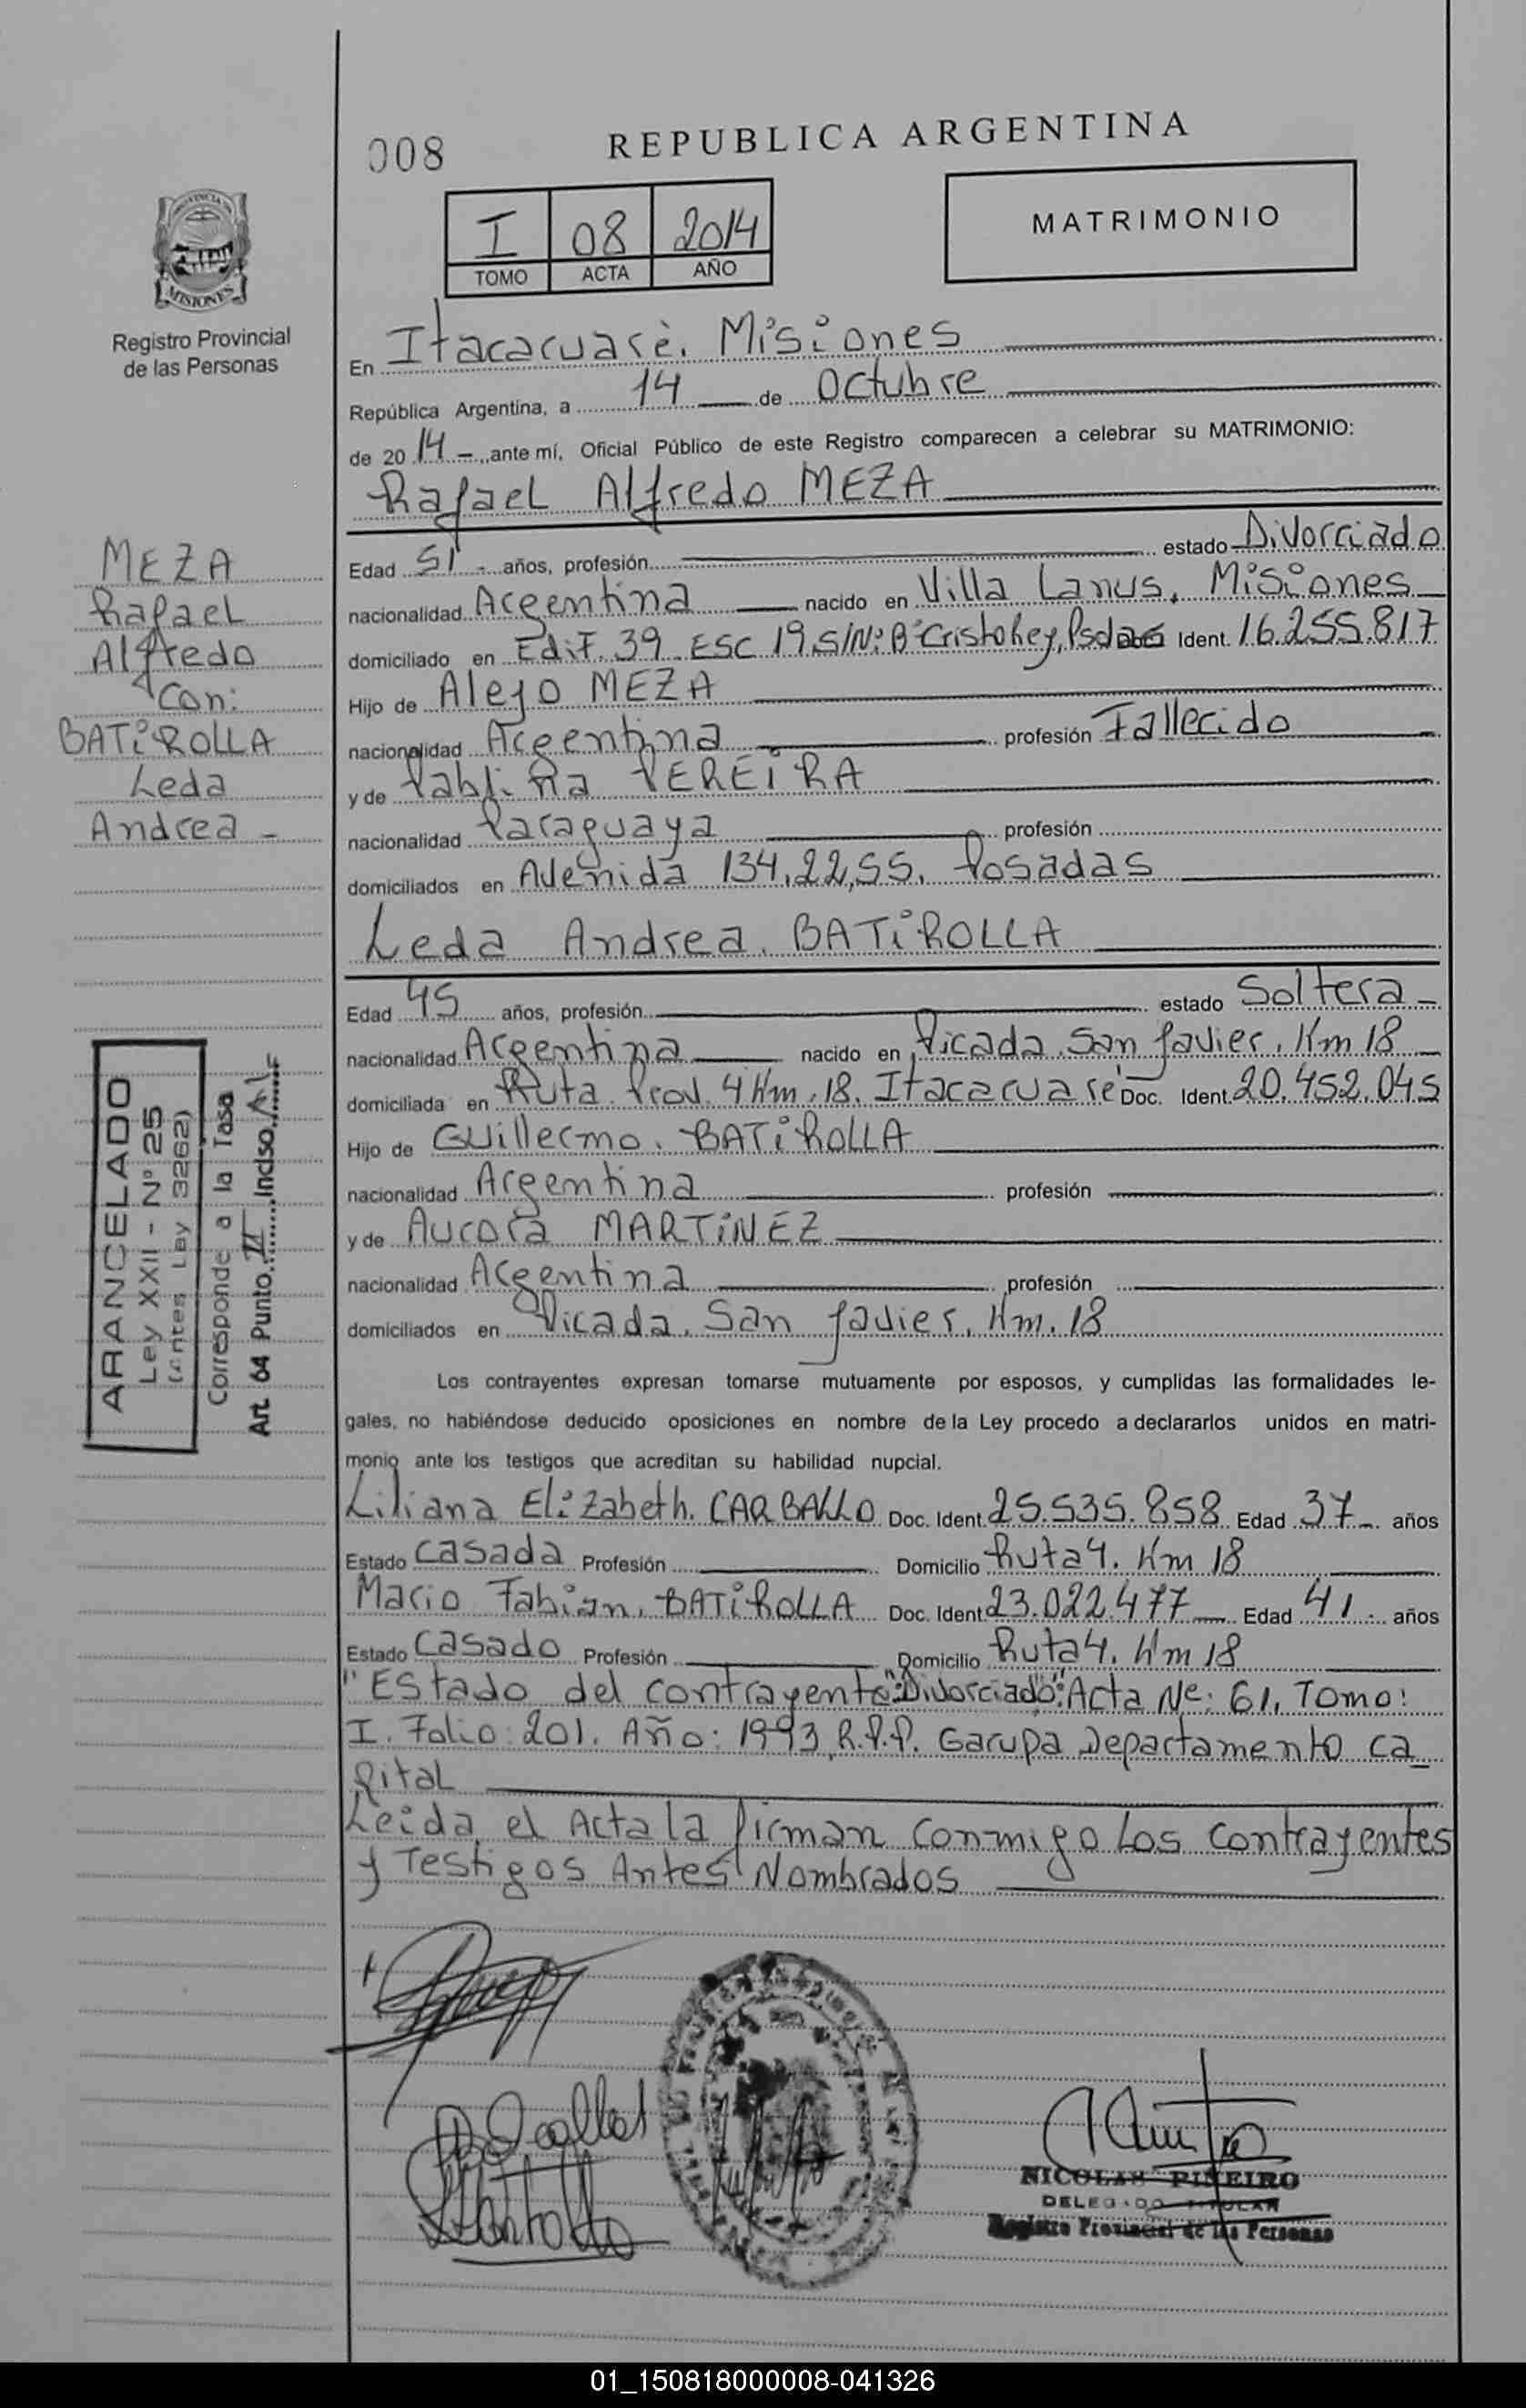 008
REPUBLICA ARGENTINA
I 08 2014
TOMO ACTA AÑO
MATRIMONIO
PROVINCIA DE
MISIONES
Registro Provincial
de las Personas
En Itacaruarè, Misiones
República Argentina, a 14 de Octubre
de 2014 - ante mí, Oficial Público de este Registro comparecen a celebrar su MATRIMONIO:
Rafael Alfredo MEZA
MEZA
Rafael
Alfredo
Con:
BATiROLLA
Leda
Andrea -
Edad 51 - años, profesión estado Divorciado
nacionalidad Argentina nacido en Villa Lanus, Misiones
domiciliado en Edif. 39 ESC 19, S/N: Bº Cristo Rey, Psdas Ident. 16.255.817
Hijo de Alejo MEZA
nacionalidad Argentina profesión Fallecido
y de Pablina PEREiRA
nacionalidad Paraguaya profesión
domiciliados en Avenida 134, 22,55, Posadas
Leda Andrea BATiROLLA
Edad 45 años, profesión estado Soltera -
nacionalidad Argentina nacido en Picada San Javier, Km 18
domiciliada en Ruta Prov. 4 Km. 18. Itacaruaré Doc. Ident. 20.452.045
Hijo de Guillermo BATiROLLA
nacionalidad Argentina profesión
y de Aurora MARTiNEZ
nacionalidad Argentina profesión
domiciliados en Picada San Javier, Km. 18
ARANCELADO
Ley XXII - Nº 25
(Antes Ley 3262)
Corresponde a la Tasa
Art. 64 Punto II Inciso
Los contrayentes expresan tomarse mutuamente por esposos, y cumplidas las formalidades le-
gales, no habiéndose deducido oposiciones en nombre de la Ley procedo a declararlos unidos en matri-
monio ante los testigos que acreditan su habilidad nupcial.
Liliana Elizabeth CARBALLO Doc. Ident. 25.535.858 Edad 37 - años
Estado Casada Profesión Domicilio Ruta 4. Km 18
Mario Fabian BATiROLLA Doc. Ident. 23.022.477 Edad 41 - años
Estado Casado Profesión Domicilio Ruta 4. Km 18
"Estado del contrayente: "Divorciado": Acta Nº: 61, Tomo:
I. Folio: 201. Año: 1993, R.P.P. Garupa Departamento Ca
pital
Leida el Acta la firman conmigo Los contrayentes
y Testigos Antes Nombrados
NICOLAS PIÑEIRO
DELEGADO TITULAR
Registro Provincial de las Personas
01_150818000008-041326